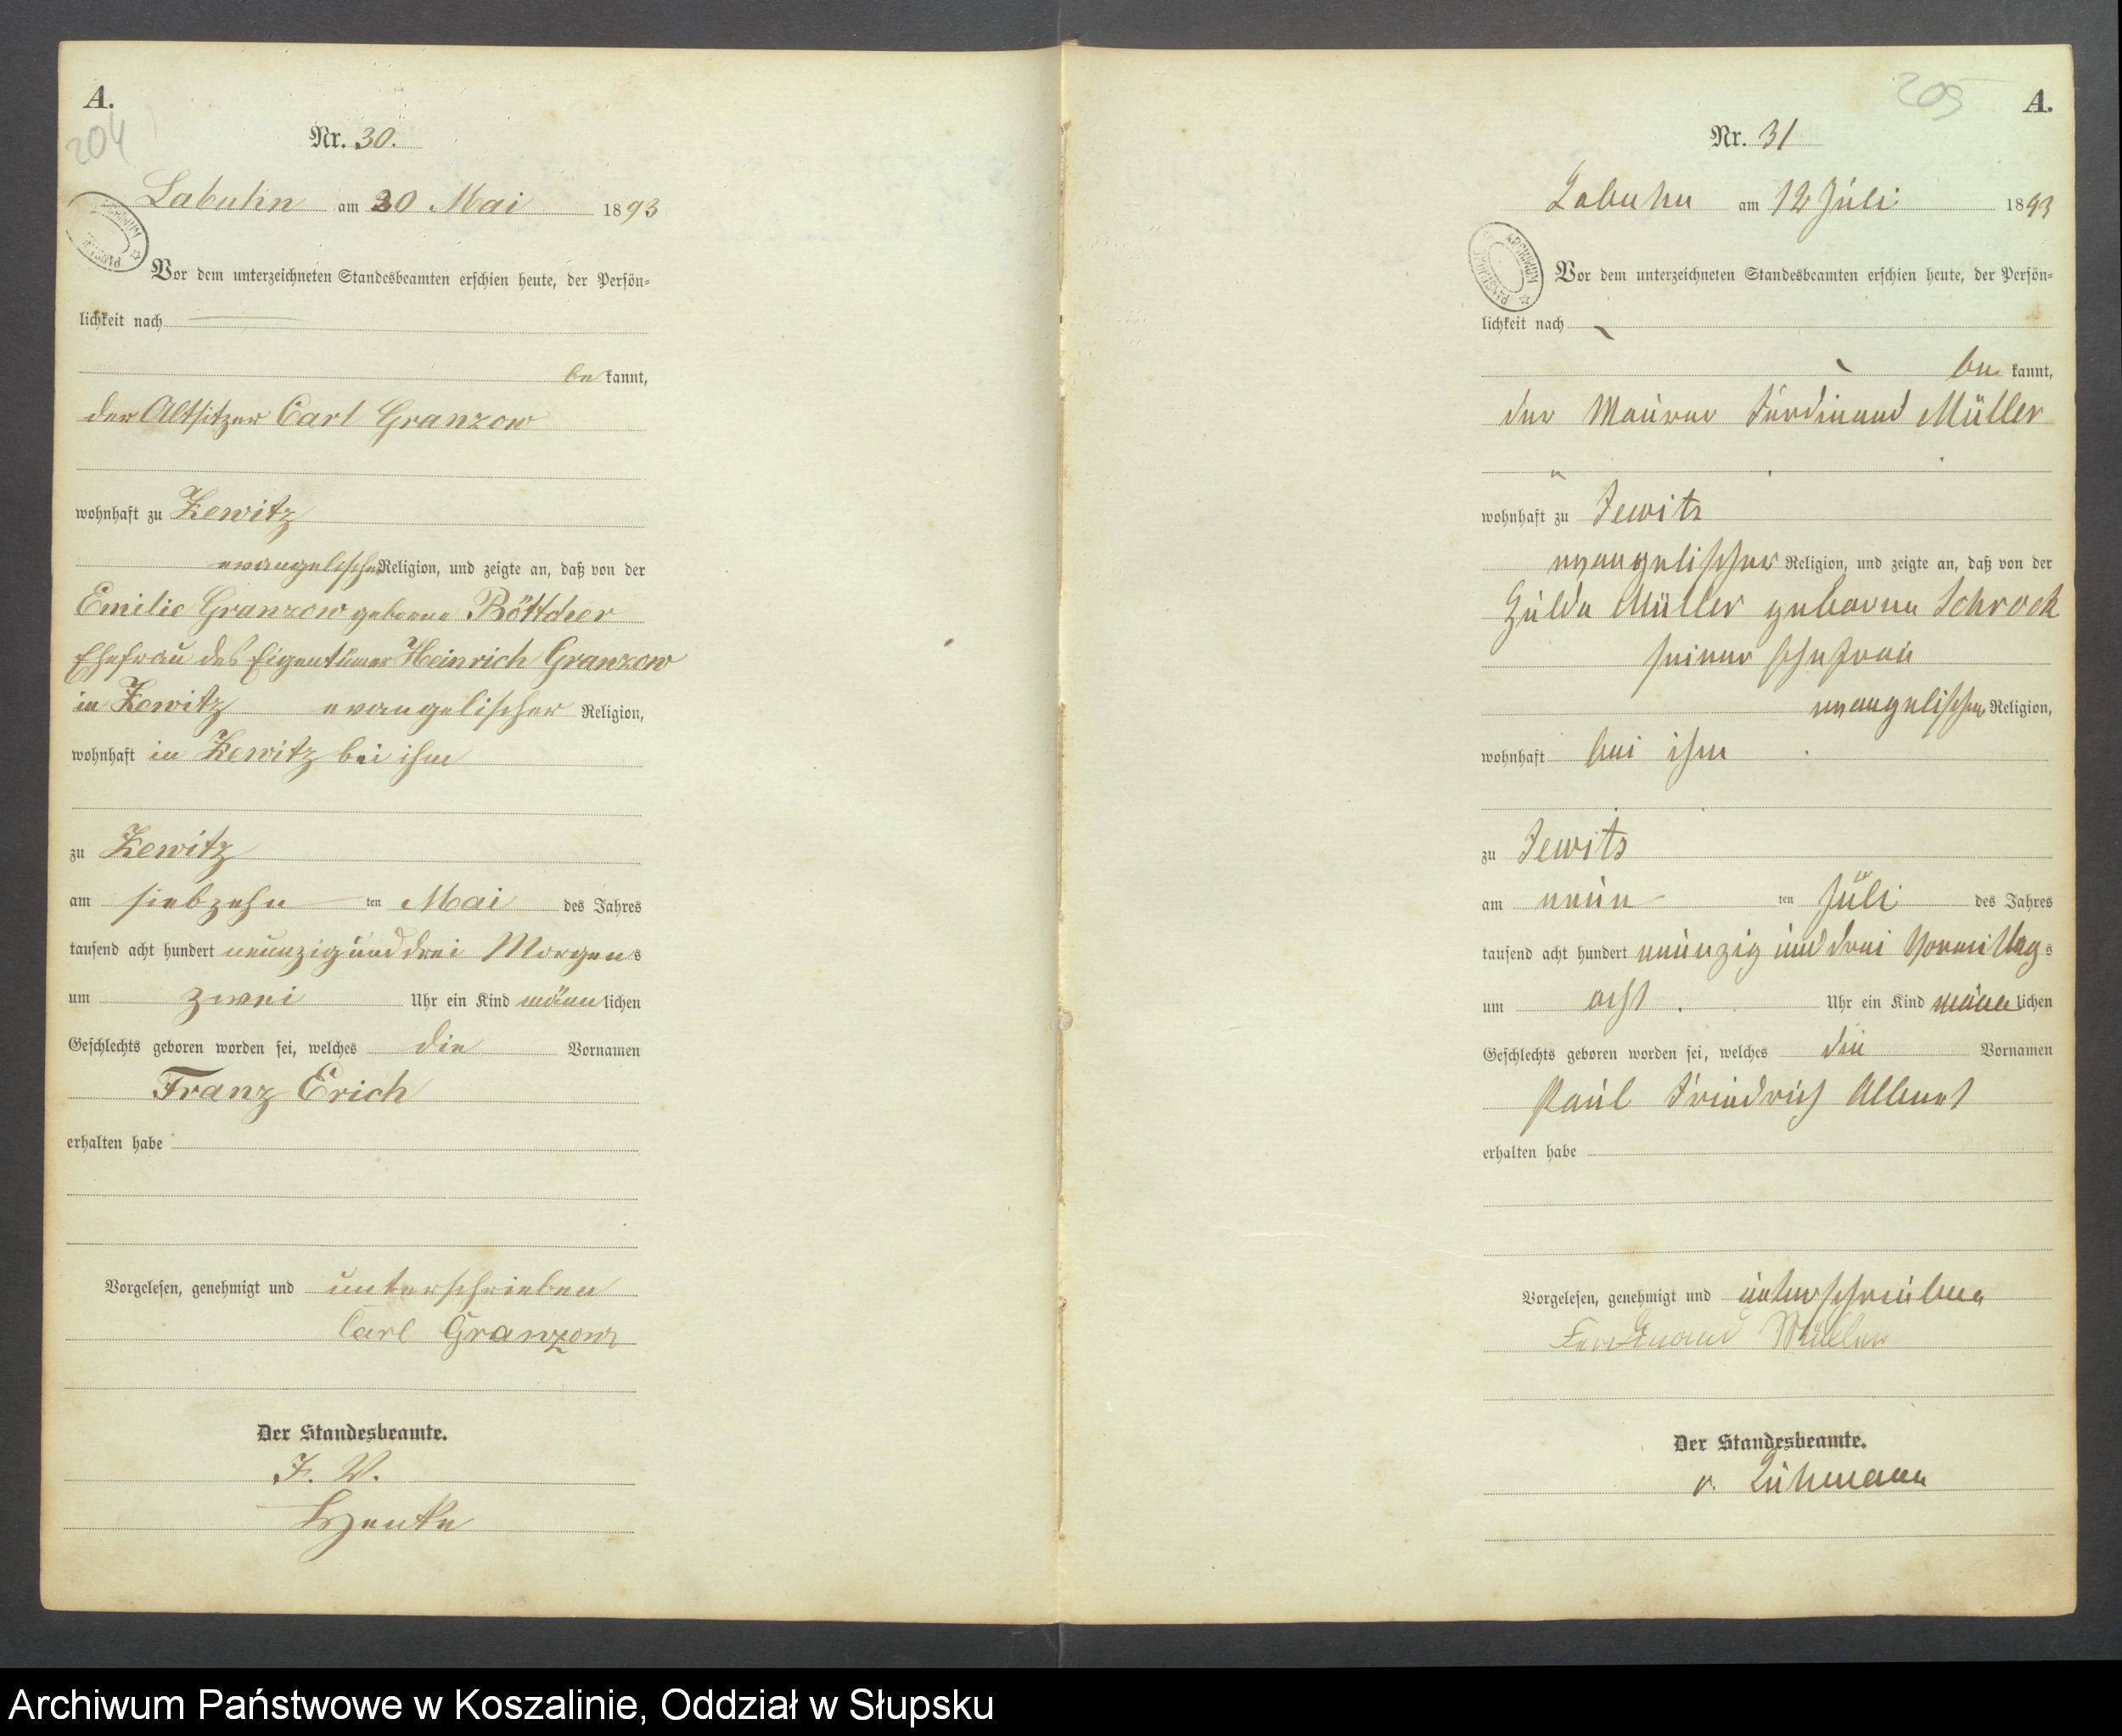 A.
204
Nr. 30.
Labuhn am 20 Mai 1893
Vor dem unterzeichneten Standesbeamten erschien heute, der Persön-
lichkeit nach
be kannt,
der Altsitzer Carl Granzow
wohnhaft zu Zewitz
evangelischer Religion, und zeigte an, daß von der
Emilie Granzow geborne Böttcher
Ehefrau des Eigentümer Heinrich Granzow
in Zewitz evangelischer Religion,
wohnhaft in Zewitz bei ihm
zu Zewitz
am siebzehn ten Mai des Jahres
tausend acht hundert neunzig und drei Morgens
um zwei Uhr ein Kind männlichen
Geschlechts geboren worden sei, welches die Vornamen
Franz Erich
erhalten habe
Vorgelesen, genehmigt und unterschrieben
Carl Granzow
Der Standesbeamte.
J. V.
205
A.
Nr. 31
Labuhn am 12 Juli 1893
ARCHIWUM PAŃSTWOWE
Vor dem unterzeichneten Standesbeamten erschien heute, der Persön-
lichkeit nach
be kannt,
der Maurer Ferdinand Müller
wohnhaft zu Zewitz
evangelischer Religion, und zeigte an, daß von der
Hulda Müller geborne Schrock
seiner Ehefrau
evangelischer Religion,
wohnhaft bei ihm
zu Zewitz
am neun ten Juli des Jahres
tausend acht hundert neunzig und drei Vormittags
um acht Uhr ein Kind männlichen
Geschlechts geboren worden sei, welches die Vornamen
Paul Friedrich Albert
erhalten habe
Vorgelesen, genehmigt und unterschrieben
Ferdinand Müller
Der Standesbeamte.
v. Lühmann
Archiwum Państwowe w Koszalinie, Oddział w Słupsku